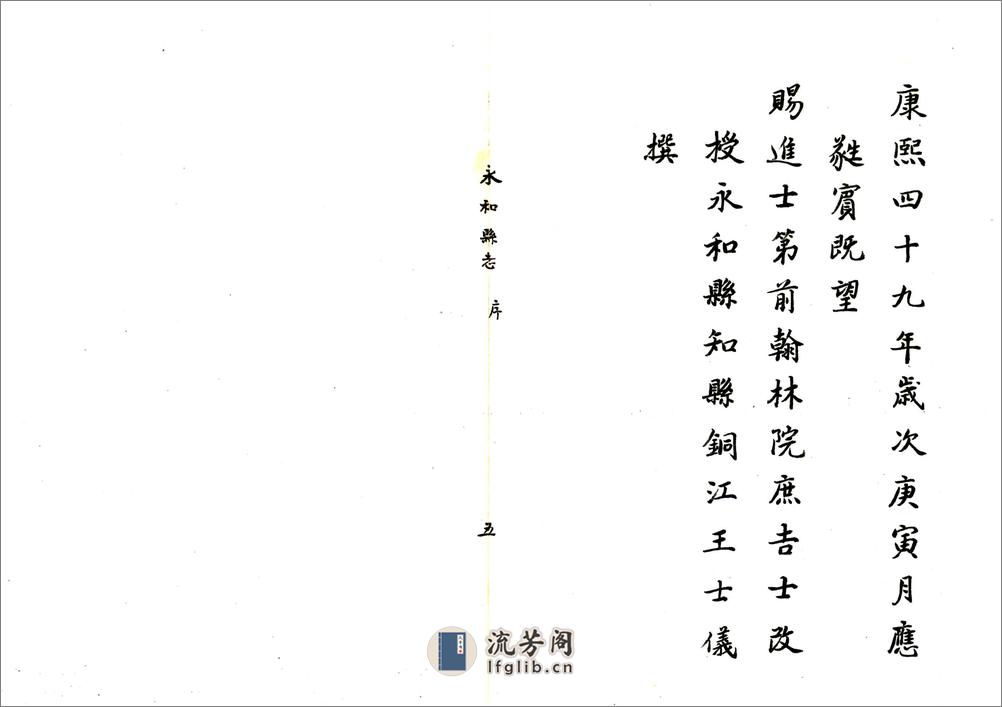 康熙四十九年歲次庚寅月應
蕤賓既望
賜進士第前翰林院庶吉士改
授永和縣知縣銅江王士儀
撰
永和縣志 序 五
流芳阁
lfglib.cn